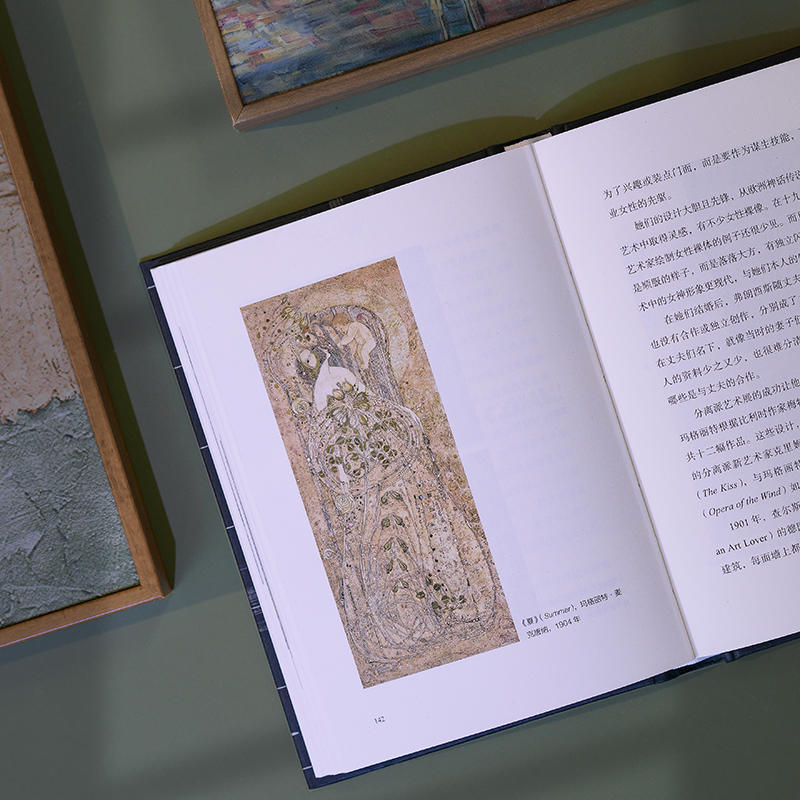 《夏》(Summer),玛格丽特·麦
克唐纳,1904 年
142
为了兴趣或装点门面,而是要作为谋生技能,
业女性的先驱。
她们的设计大胆且先锋,从欧洲神话传
艺术中取得灵感,有不少女性裸像。在十九
艺术家绘制女性裸体的例子还很少见。而
是顺服的样子,而是落落大方,有独立
术中的女神形象更现代,与她们本人的
在她们结婚后,弗朗西斯随丈夫
也没有合作或独立创作,分别成了
在丈夫们名下,就像当时的妻子们
人的资料少之又少,也很难分清
哪些是与丈夫的合作。
分离派艺术展的成功让他
玛格丽特根据比利时作家梅特
共十二幅作品。这些设计,
的分离派新艺术家克里姆
(The Kiss),与玛格丽特
(Opera of the Wind)如
1901 年,查尔斯
an Art Lover)的德
建筑,每面墙上都